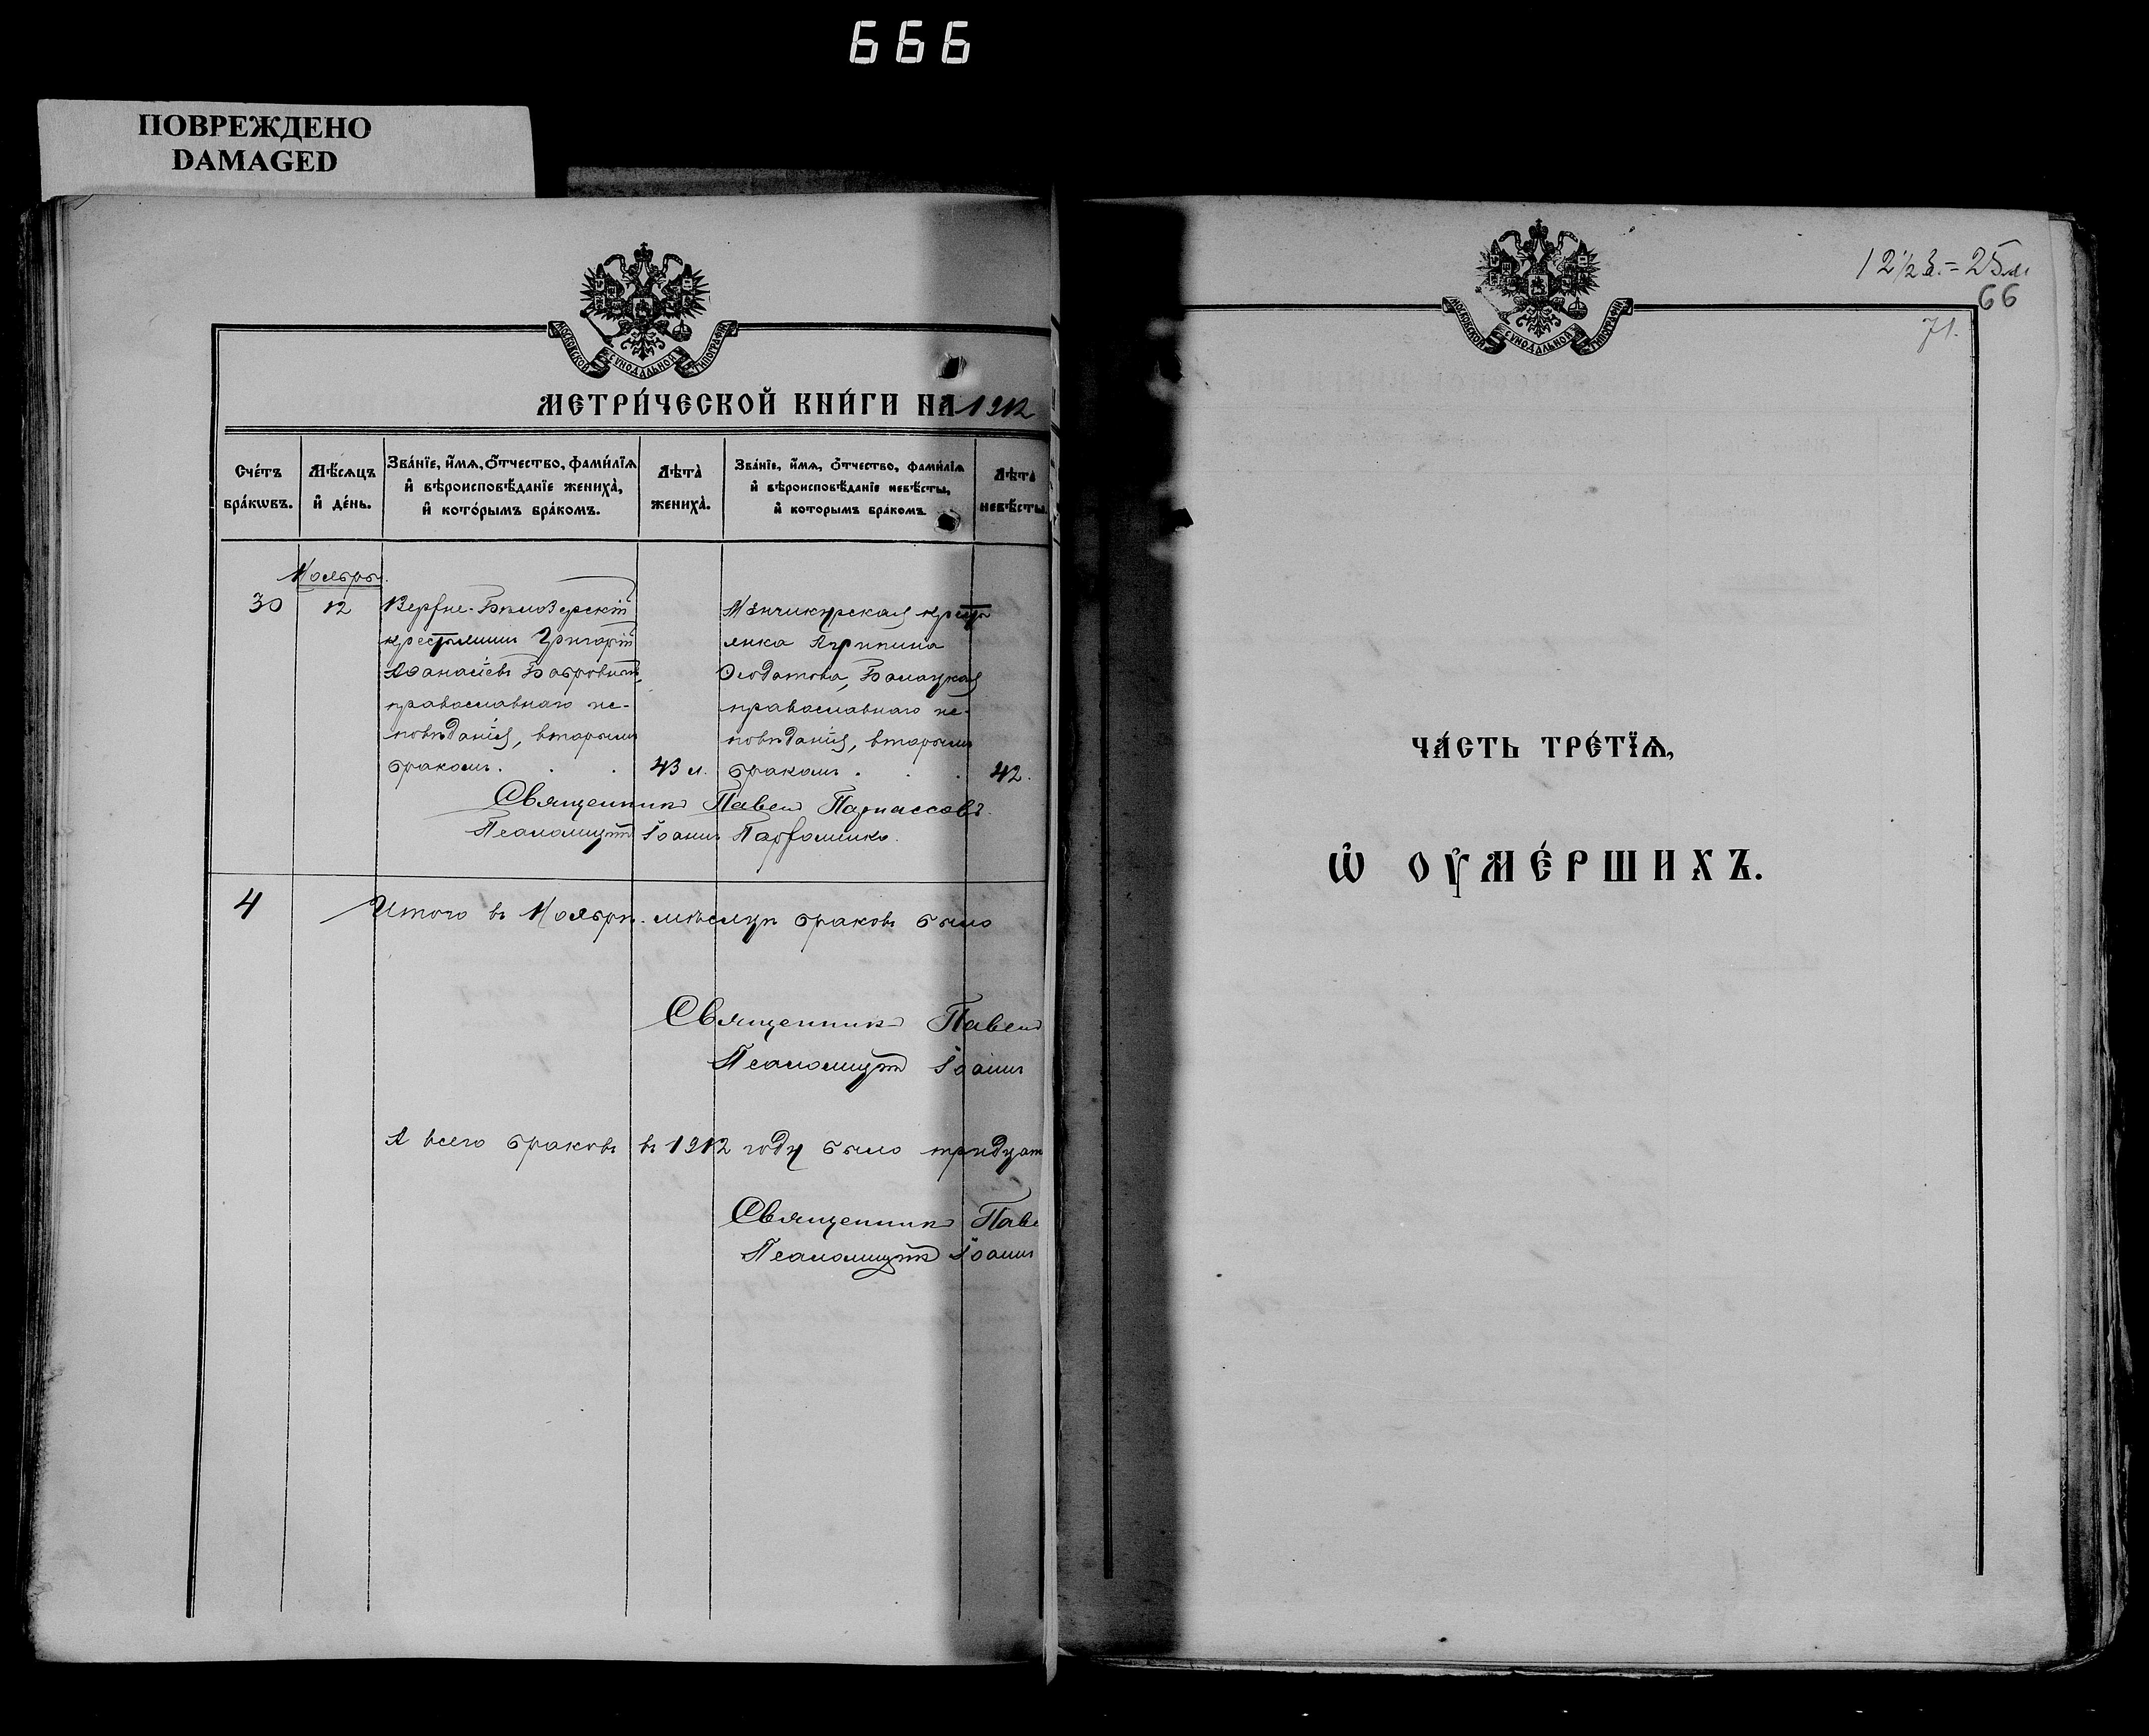 666
ПОВРЕЖДЕНО
DAMAGED
МОСКОВСКОЙ СѴНОДАЛЬНОЙ ТИПОГРАФІИ
МЕТРИ́ЧЕСКОЙ КНИ́ГИ НА 1912
Сче́тъ бра́кѡвъ.
Мѣ́сяцъ и҆ де́нь.
Зва́нїе, и҆́мѧ, ѻ҆́тчество, фами́лїѧ и҆ вѣроисповѣ́данїе жениха̀, и҆ кото́рымъ бра́комъ.
Лѣта̀ жениха̀.
Зва́нїе, и҆́мѧ, ѻ҆́тчество, фами́лїѧ и҆ вѣроисповѣ́данїе невѣ́сты, и҆ которымъ бра́комъ
Лѣта̀ невѣ́сты.
Ноябрь.
30
12
Верхне-Бѣлозерскій
крестьянинъ Григорій
Аѳанасіевъ
православнаго ис-
повѣданія, вторымъ
бракомъ. . .
43 л.
Менчикурская крестья
янка Агрипина
Ѳеодотова,
православнаго ис-
повѣданія, вторымъ
бракомъ . . .
42.
Священникъ Павелъ Парнассовъ.
Псаломщикъ Іоаннъ Пархоменко.
4
Итого въ Ноябрѣ мѣсяцѣ браковъ было
Священникъ Павелъ
Псаломщикъ Іоаннъ
А всего браковъ въ 1912 году было тридцат
Священникъ Паве
Псаломщикъ Іоаннъ
МОСКОВСКОЙ СѴНОДАЛЬНОЙ ТИПОГРАФІИ
12 1/2 = 25 л
66
71.
ЧА́СТЬ ТРЕ́ТЇѦ,
Ѡ҆ ОУ҆МЕ́РШИХЪ.